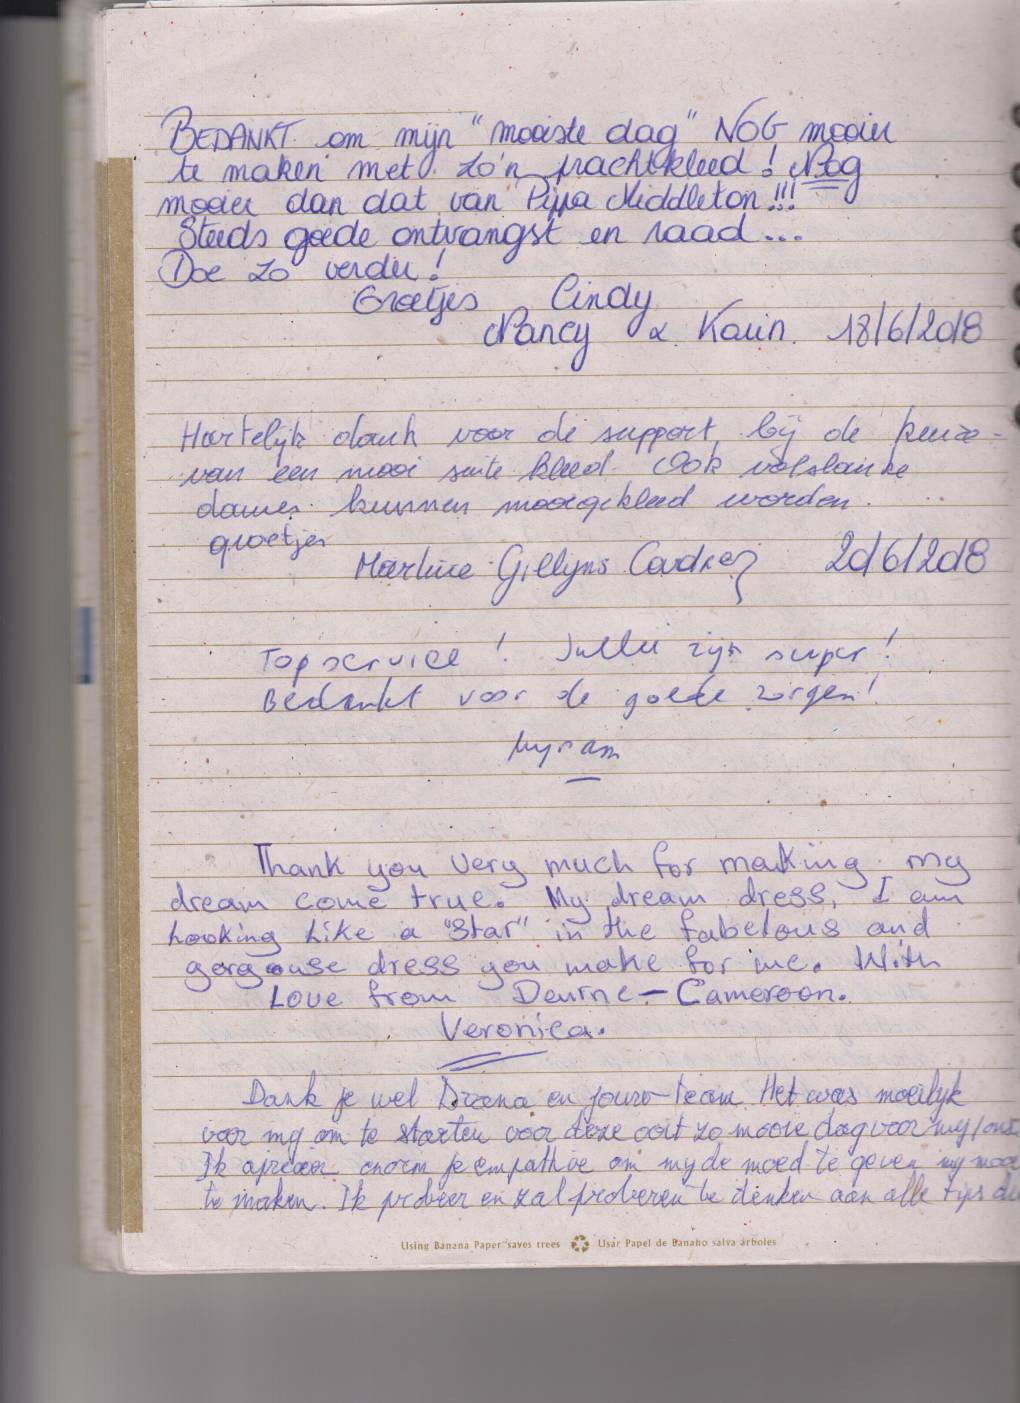 BEDANKT om mijn "mooiste dag" NOG mooier
te maken met zo'n prachtkleed! Nog
mooier dan dat van Pippa Middleton!!!
Steeds goede ontvangst en raad...
Doe zo verder!
Groetjes Cindy
Nancy & Karin. 18/6/2018
Hartelijk dank voor de support, bij de keuze
van een mooi suite kleed. Ook volslanke
dames kunnen mooi gekleed worden.
groetjes
Martine Gillyns 20/6/2018
Topservice! Jullie zijn super!
Bedankt voor de goede zorgen!
Myriam
Thank you very much for making my
dream come true. My dream dress, I am
Looking Like a "Star" in the fabelous and
gorgouse dress you make for me. With
Love from Deurne - Cameroon.
Veronica.
Dank je wel en jouw team. Het was moeilyk
voor my om te starten voor deze ooit zo mooie dag voor my/ons
Ik enorm je empathie om my de moed te geven my mooi
te maken. Ik probeer en zal proberen te denken aan alle tips
Using Banana Paper saves trees Usar Papel de Banano salva árboles